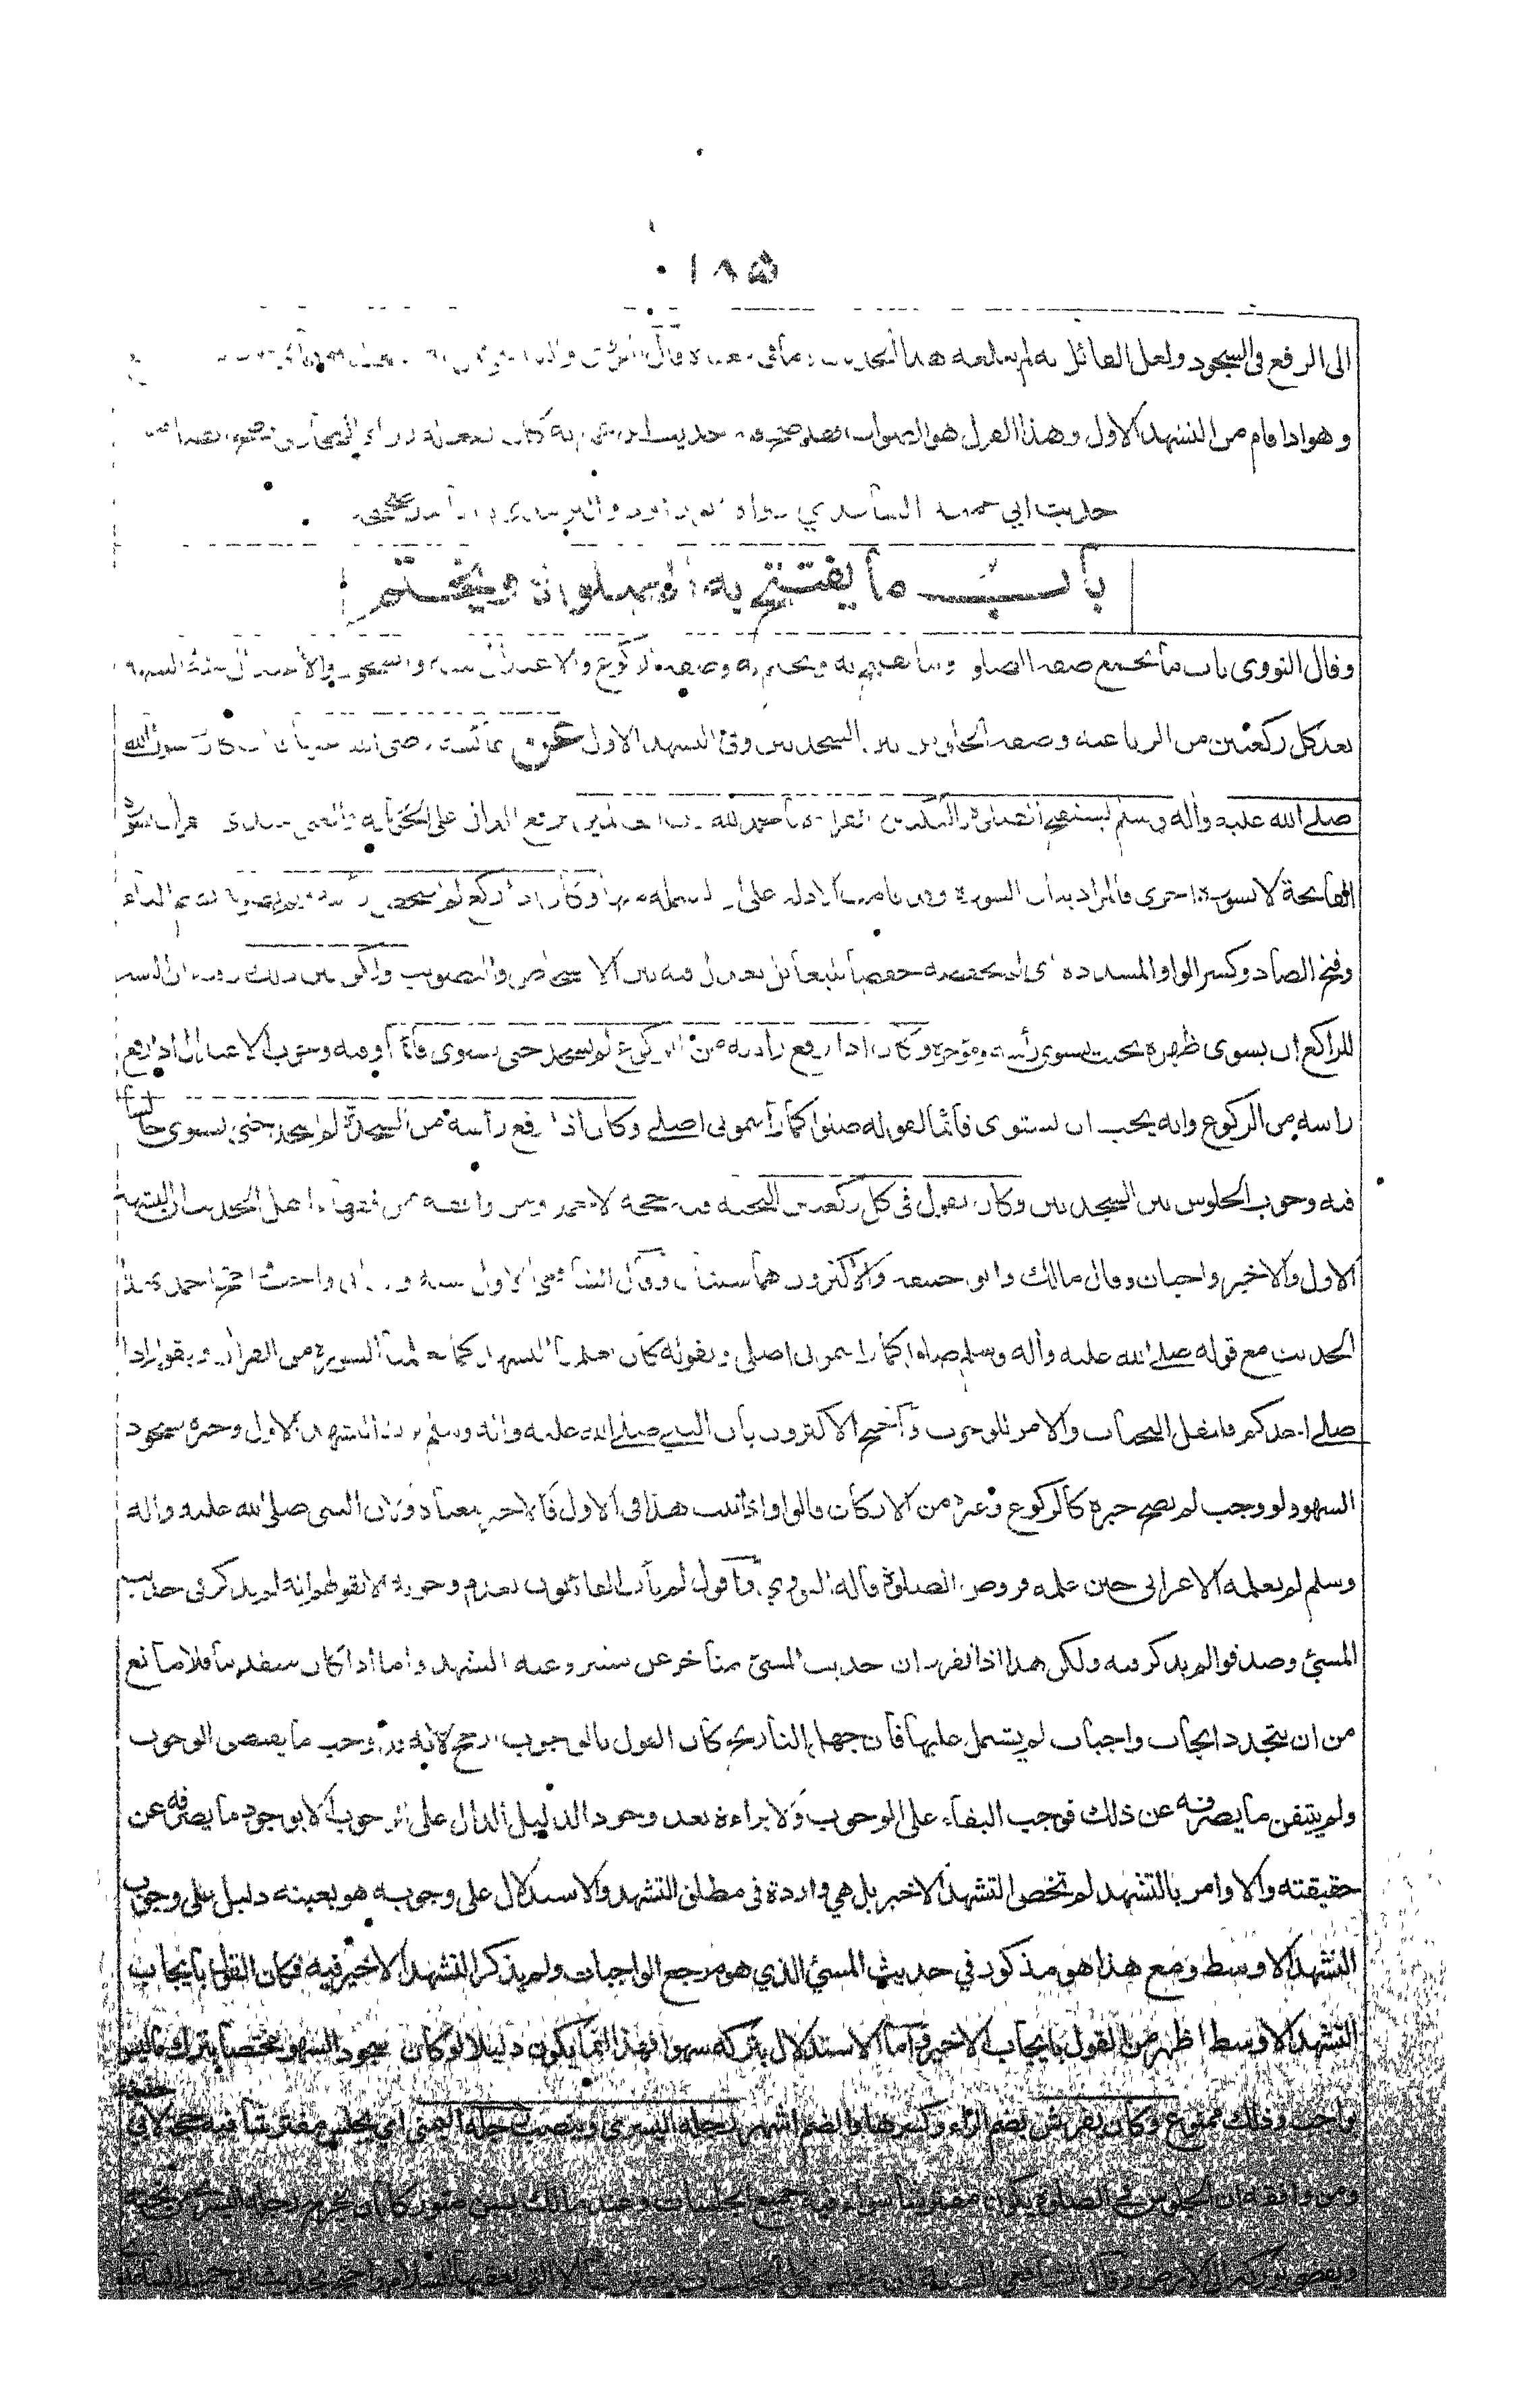 ١٨٥
الى الرفع فى السجود ولعل القائل به لم يبلغه هذا الحديث
وهو اذا قام من التشهد الاول وهذا القول هو الصواب فقد صح فيه حديث ابن عمر انه كان يفعله رواه البخارى
حديث ابي حميد الساعدي رواه ابو داود والترمذى
باب ما يفتتح به الصلوة ويختم
وقال النووى باب ما يجمع صفة الصلوة وما يفتتح به ويختم به وصفة الركوع والاعتدال منه والسجود والاعتدال منه والتشهد
بعد كل ركعتين من الرباعية وصفة الجلوس بين السجدتين وفى التشهد الاول عن عائشة رضى الله عنها قالت كان رسول الله
صلى الله عليه وأله وسلم يستفتح الصلوة بالتكبير والقراءة بالحمد لله رب العالمين برفع الدال على الحكاية
الفاتحة لا بسورة اخرى فالمراد بدأت السورة وقد قامت الادلة على ان البسملة منها وكان اذا ركع لم يشخص رأسه ولم يصوبه بضم الياء
وفتح الصاد وكسر الواو المشددة اى لم يخفضه خفضا بليغا بل يعدل فيه بين الاشخاص والتصويب ولكن بين ذلك وفيه ان السنة
للراكع ان يسوى ظهره بحيث يستوى رأسه ومؤخره وكان اذا رفع رأسه من الركوع لم يسجد حتى يستوى قائما وفيه وجوب الاعتدال اذا رفع
راسه من الركوع وانه يجب ان يستوى قائما لقوله صلوا كما رأيتمونى اصلى وكان اذا رفع رأسه من السجدة لم يسجد حتى يستوى جالسا
فيه وجوب الجلوس بين السجدتين وكان يقول فى كل ركعتين التحية فيه حجة لاحمد ومن وافقه من فقهاء اهل الحديث ان التشهد
الاول والاخير واجبان وقال مالك وابو حنيفة والاكثرون هما سنتان وقال الشافعى الاول سنة والثانى واجب احتج احمد بهذا
الحديث مع قوله صلى الله عليه وأله وسلم صلوا كما رايتمونى اصلى وبقوله كان يعلمنا التشهد كما يعلمنا السورة من القرآن وبقوله اذا
صلى احدكم فليقل التحيات والامر للوجوب واحتج الاكثرون بان النبي صلى الله عليه وأله وسلم ترك التشهد الاول وجبره بسجود
السهو ولو وجب لم يصح جبره كالركوع وغيره من الاركان قالوا واذا ثبت هذا فى الاول فالاخير بمعناه ولان النبى صلى الله عليه وأله
وسلم لم يعلمه الاعرابى حين علمه فروض الصلوة قاله النووي واقول لم يأت القائلون بعدم وجوبه الا بقولهم انه لم يذكر فى حديث
المسئ وصدقوا لم يذكر فيه ولكن هذا اذا تقرر ان حديث المسئ متأخر عن مشروعية التشهد واما اذا كان متقدما فلا مانع
من ان يتجدد ايجاب واجبات لم يشتمل عليها فان جهل التأريخ كان القول بالوجوب ارجح لانه قد وجب ما يقتضى الوجوب
ولم يتيقن ما يصرفه عن ذلك فوجب البقاء على الوجوب ولا براءة بعد وجود الدليل الدال على الوجوب الا بوجود ما يصرفه عن
حقيقته والاوامر بالتشهد لم تخص التشهد الاخير بل هي واردة فى مطلق التشهد والاستدلال على وجوبه هو بعينه دليل على وجوب
التشهد الاوسط ومع هذا هو مذكور في حديث المسئ الذي هو مرجع الواجبات ولم يذكر التشهد الاخير فيه فكان القول بايجاب
التشهد الاوسط اظهر من القول بايجاب الاخير واما الاستدلال بتركه سهوا فهذا انما يكون دليلا لو كان سجود السهو مختصا بترك ما ليس
بواجب وذلك ممنوع وكان يفرش بضم الراء وكسرها والضم اشهر رجله اليسرى وينصب رجله اليمنى اي يجلس مفترشا فيه حجة لابي حنيفة
ومن وافقه ان الجلوس فى الصلوة يكون مفترشا سواء فيه جميع الجلسات وعند مالك يسن متوركا بان يخرج رجله اليسرى من تحته
ويفضى بوركه الى الارض وقال الشافعى السنة ان يجلس